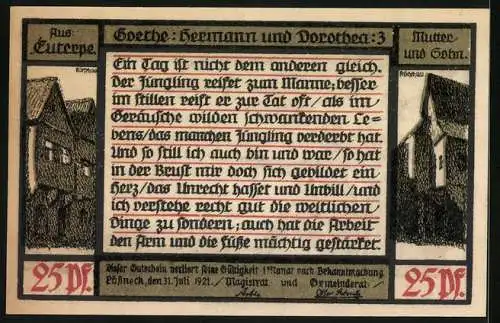 Aus:
Euterpe.
Goethe: Hermann und Dorothea: 3
Mutter
und Sohn.
Ein Tag ist nicht dem anderen gleich.
Der Jüngling reifet zum Manne; besser
im stillen reift er zur Tat oft / als im
Geräusche wilden schwankenden Le=
bens / das manchen Jüngling verderbt hat.
Und so still ich auch bin und war / so hat
in der Brust mir doch sich gebildet ein
Herz / das Unrecht hasset und Unbill / und
ich verstehe recht gut die weltlichen
Dinge zu sondern; auch hat die Arbeit
den Arm und die Füße mächtig gestärket.
25 Pf.
Dieser Gutschein verliert seine Gültigkeit 1 Monat nach Bekanntmachung
Pößneck, den 31. Juli 1921. Magistrat und Gemeinderat:
25 Pf.